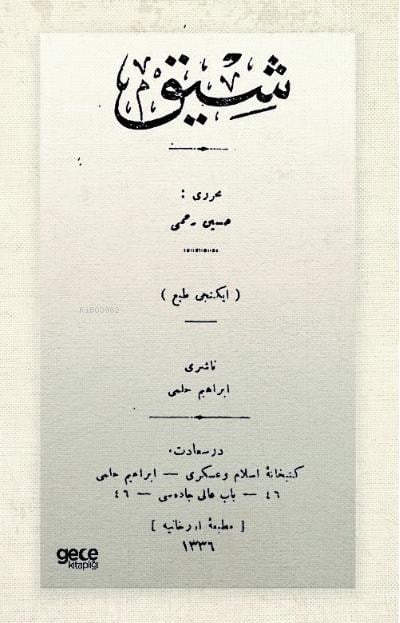 شيق
محرری :
حسين رحمی
( ايكنجی طبع )
ناشری
ابراهيم حلمی
درسعادت.
كتبخانهٔ اسلام وعسكری — ابراهيم حلمی
٤٦ — باب عالی جاده‌سی — ٤٦
[ مطبعهٔ اورخانيه ]
١٣٣٦
gece
kitaplığı